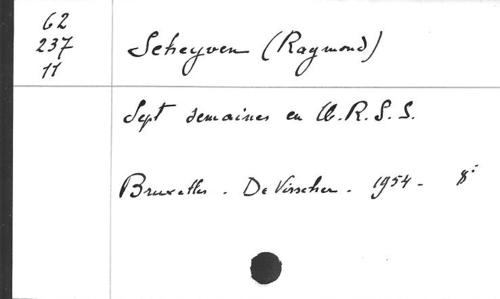 62
237
11
Scheyven (Raymond)
Sept semaines en U.R.S.S.
Bruxelles. De Visscher. 1954. 8°